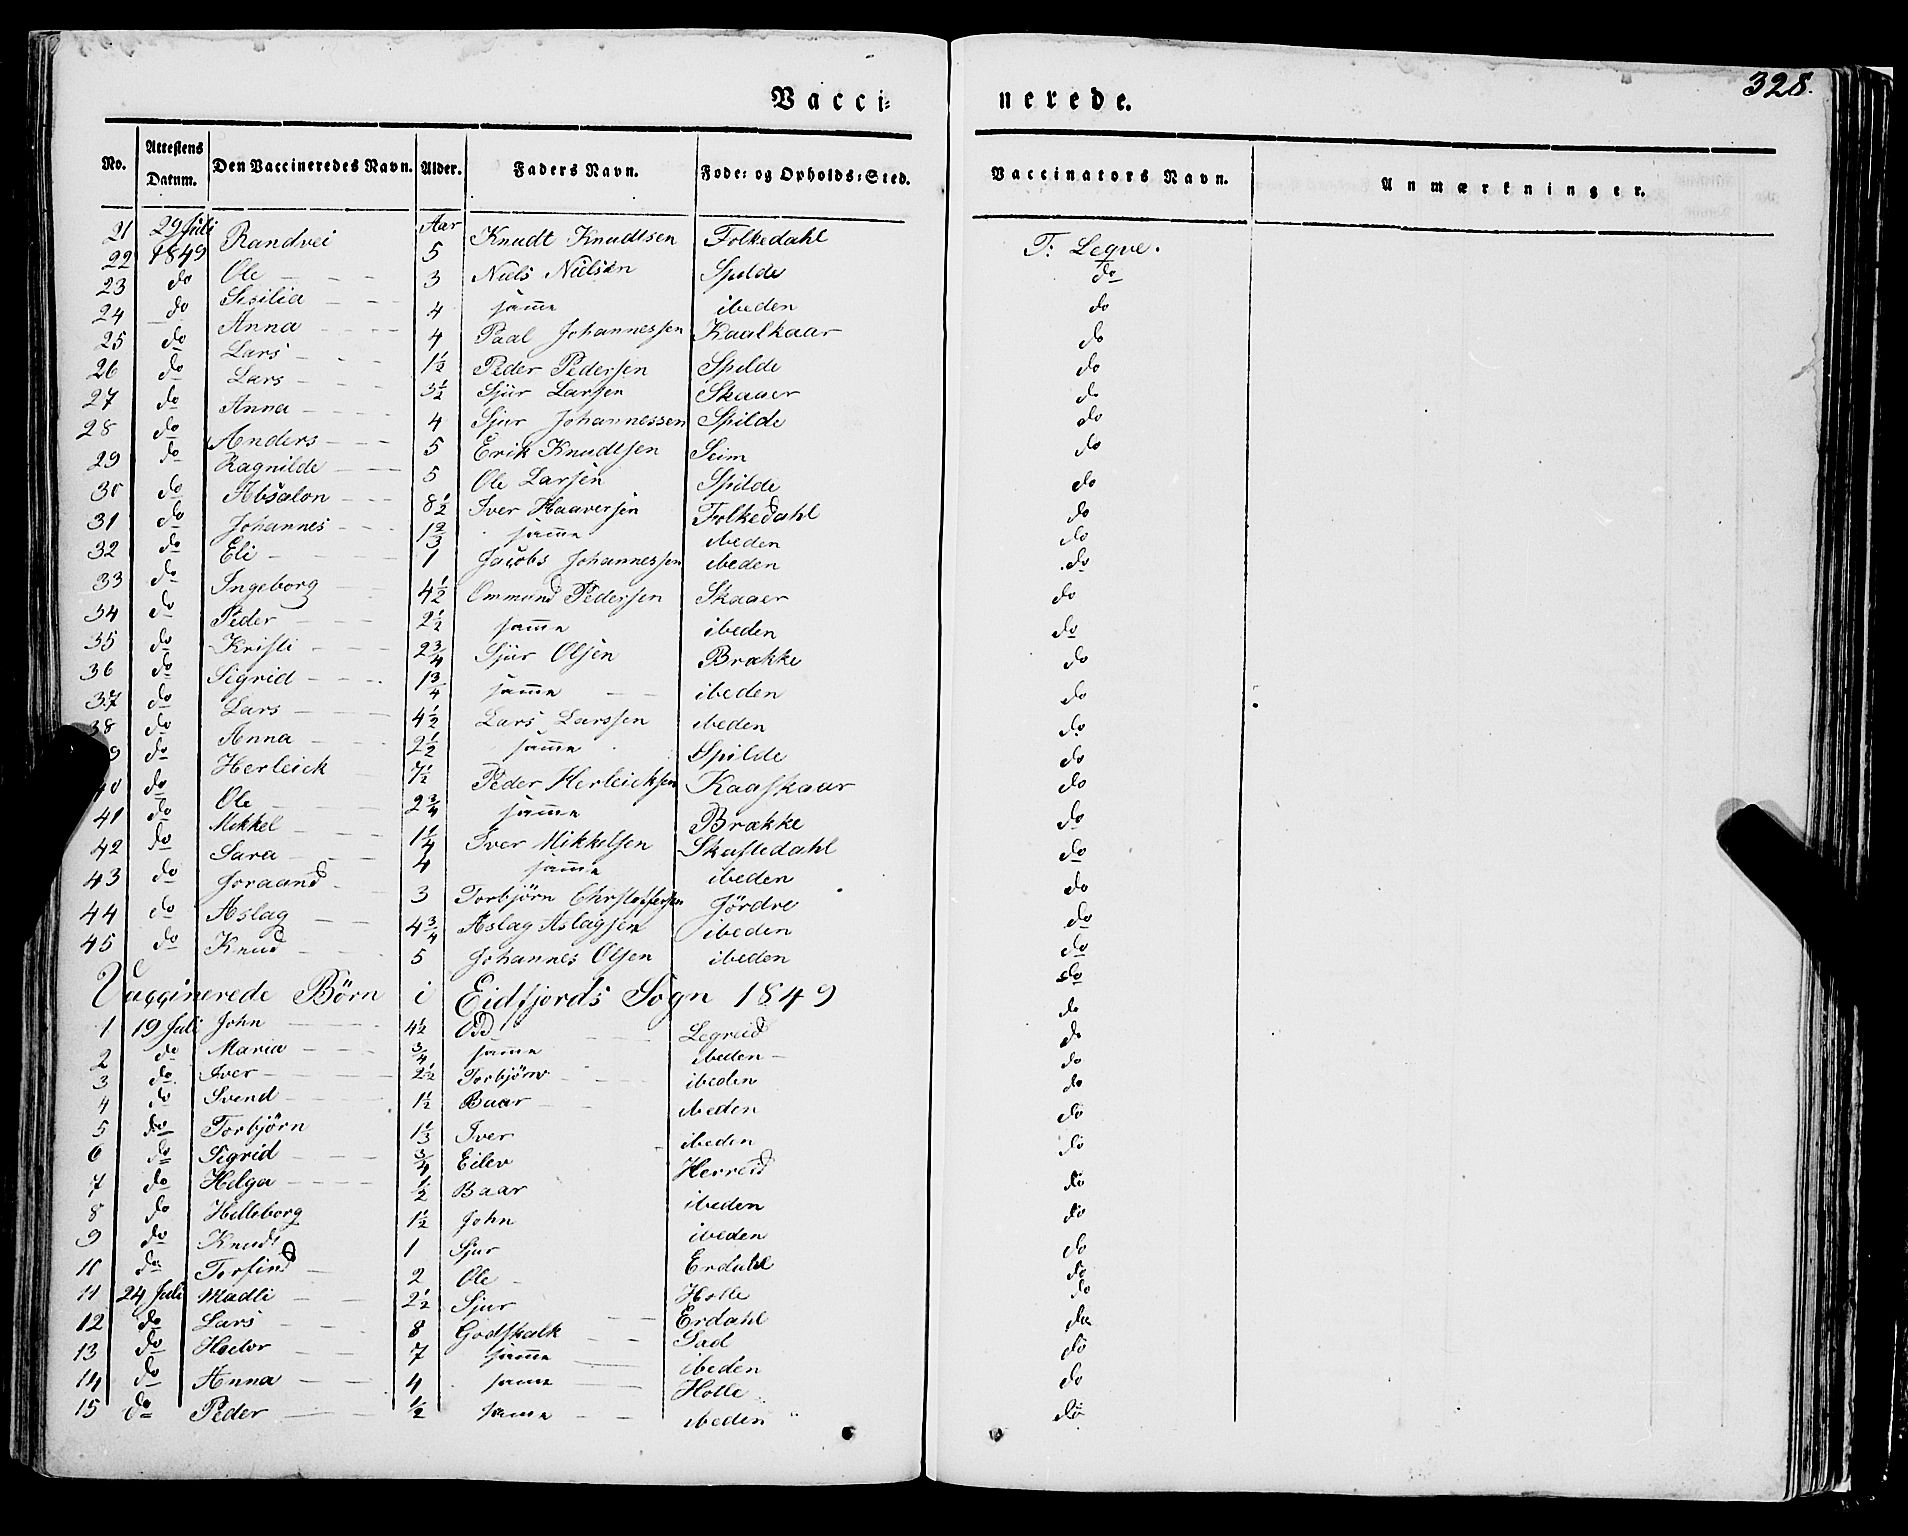 328.
Vacci- nerede.
No. Attestens Datum. Den Vaccineredes Navn. Alder. Faders Navn. Føde- og Opholds-Sted. Vaccinators Navn. Anmærkninger.
21 29 Juli 1849 Randvei Aar 5 Knudt Knudtsen Folkedahl T. Legve.
22 do Ole 3 Niels Nielsen Spilde do
23 do Sisilia 4 samme ibeden do
24 do Anna 4 Paal Johannessen Kaalkaar do
25 do Lars 1½ Peder Pedersen Spilde do
26 do Lars 3½ Sjur Larsen Skaaer do
27 do Anna 4 Sjur Johannessen Spilde do
28 do Anders 5 Erik Knudtsen Seim do
29 do Ragnilde 5 Ole Larsen Spilde do
30 do Absalon 8½ Iver Haaversen Folkedahl do
31 do Johannes 1⅔ samme ibeden do
32 do Eli 1 Jacobs Johannessen ibeden do
33 do Ingeborg 4½ Ommund Pedersen Skaaer do
34 do Peder 2½ samme ibeden do
35 do Kristi 2¾ Sjur Olsen Brække do
36 do Sigrid 1¾ samme ibeden do
37 do Lars 4½ Lars Larssen ibeden do
38 do Anna 2½ samme Spilde do
9 do Herleick 7½ Peder Herleicksen Kaafskaar do
40 do Ole 2¾ samme Brække do
41 do Mikkel 1¼ Iver Mikkelsen Skaftedahl do
42 do Sara 4 samme ibeden do
43 do Joraand 3 Torbjörn Christoffersen Jördre do
44 do Aslag 4¾ Aslag Aslagsen ibeden do
45 do Knud 5 Johannes Olsen ibeden do
Vagginerede Börn i Eidfjords Sogn 1849 do
1 19 Juli John 4½ Odd Legreid do
2 do Maria ¾ samme ibeden do
3 do Iver 2½ Torbjörn ibeden do
4 do Svend 1½ Baar ibeden do
5 do Torbjörn 1⅓ Iver ibeden do
6 do Sigrid ¾ Eilev Herreid do
7 do Helga ½ Baar ibeden do
8 do Helleborg 1½ John ibeden do
9 do Knudt 1 Sjur Erdahl do
10 do Torfind 2 Ole Holle do
11 24 Juli Madli 2½ Sjur Erdahl do
12 do Lars 8 Godskalk Sad do
13 do Hector 7 samme ibeden do
14 do Anna 4 samme Holle do
15 do Peder ½ samme ibeden do